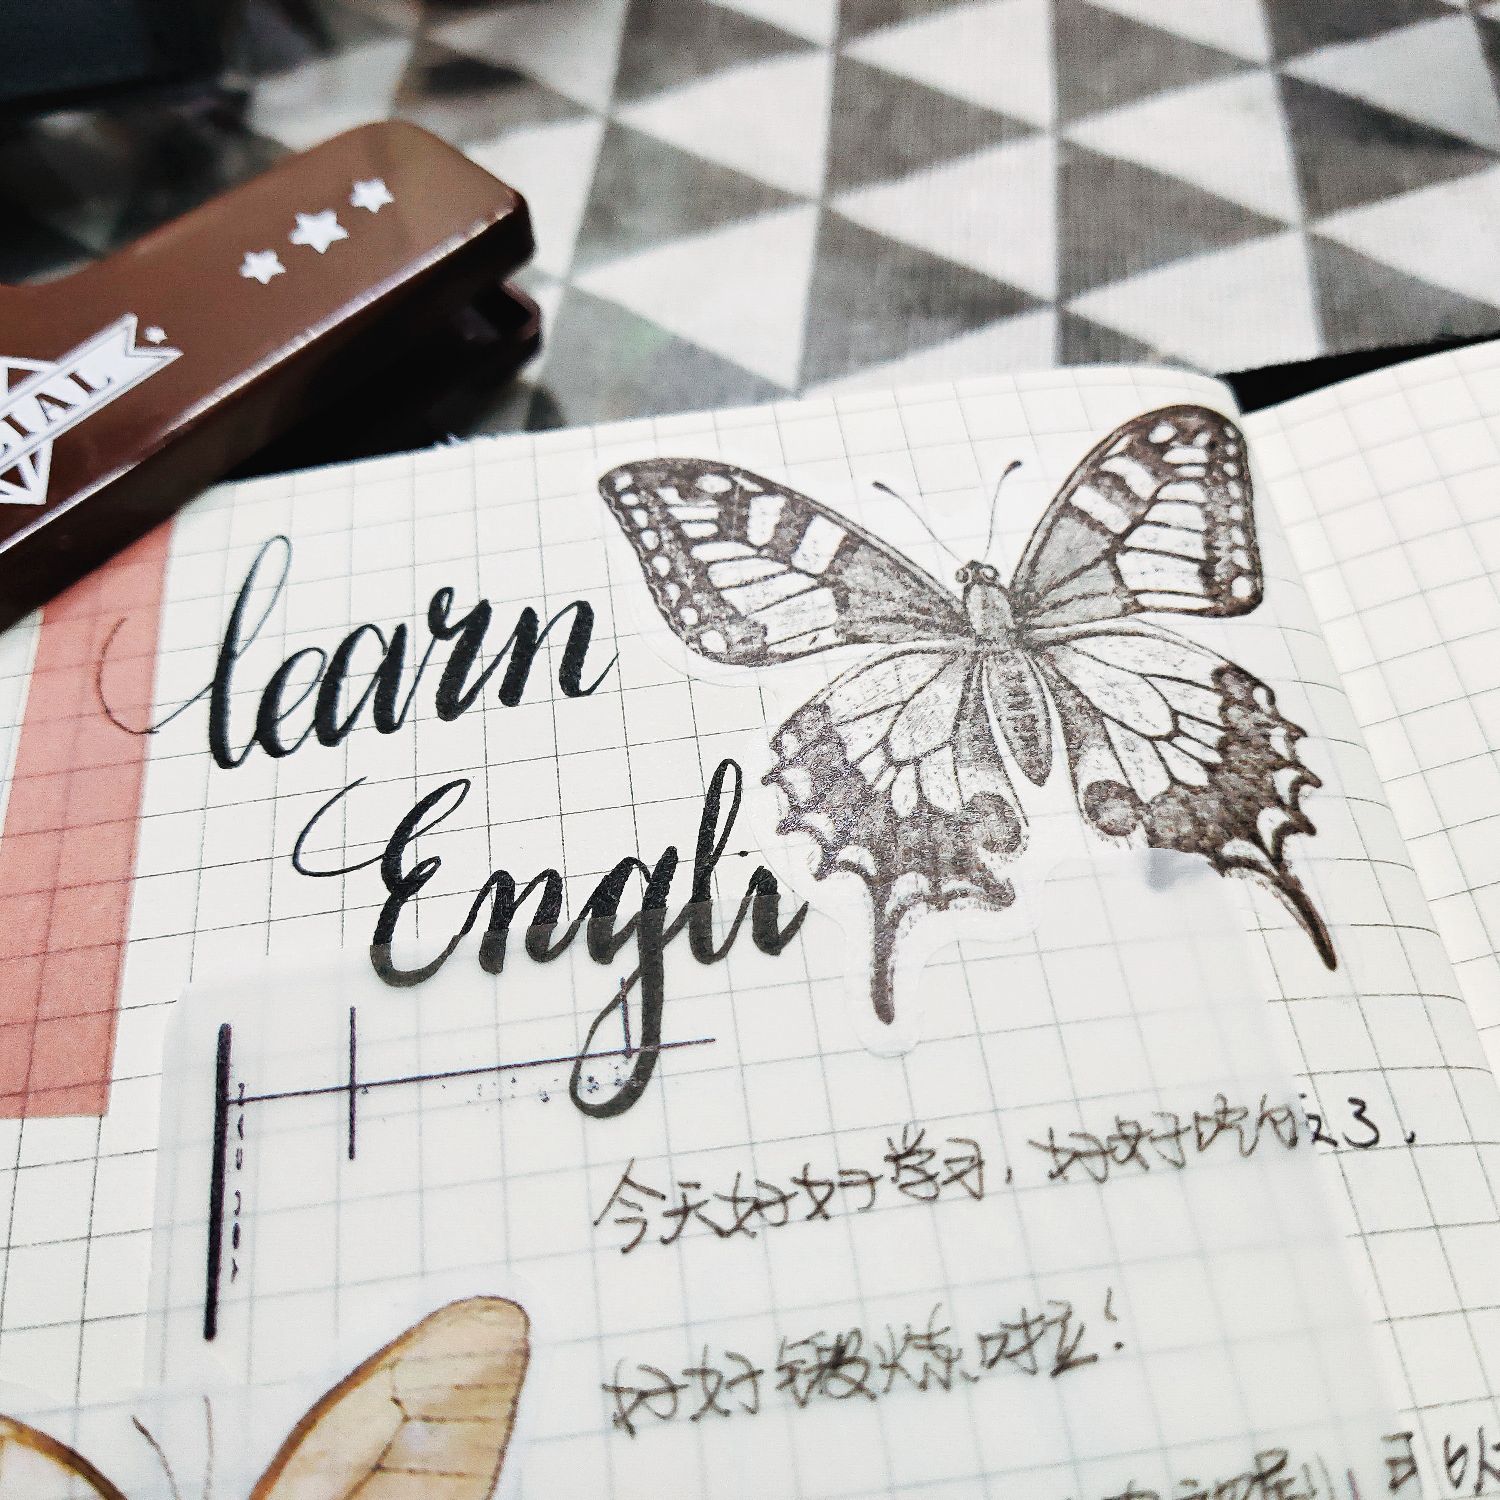 CIAL
learn
Engli
今天好好学习，好好吃饭了，
好好锻炼啦！